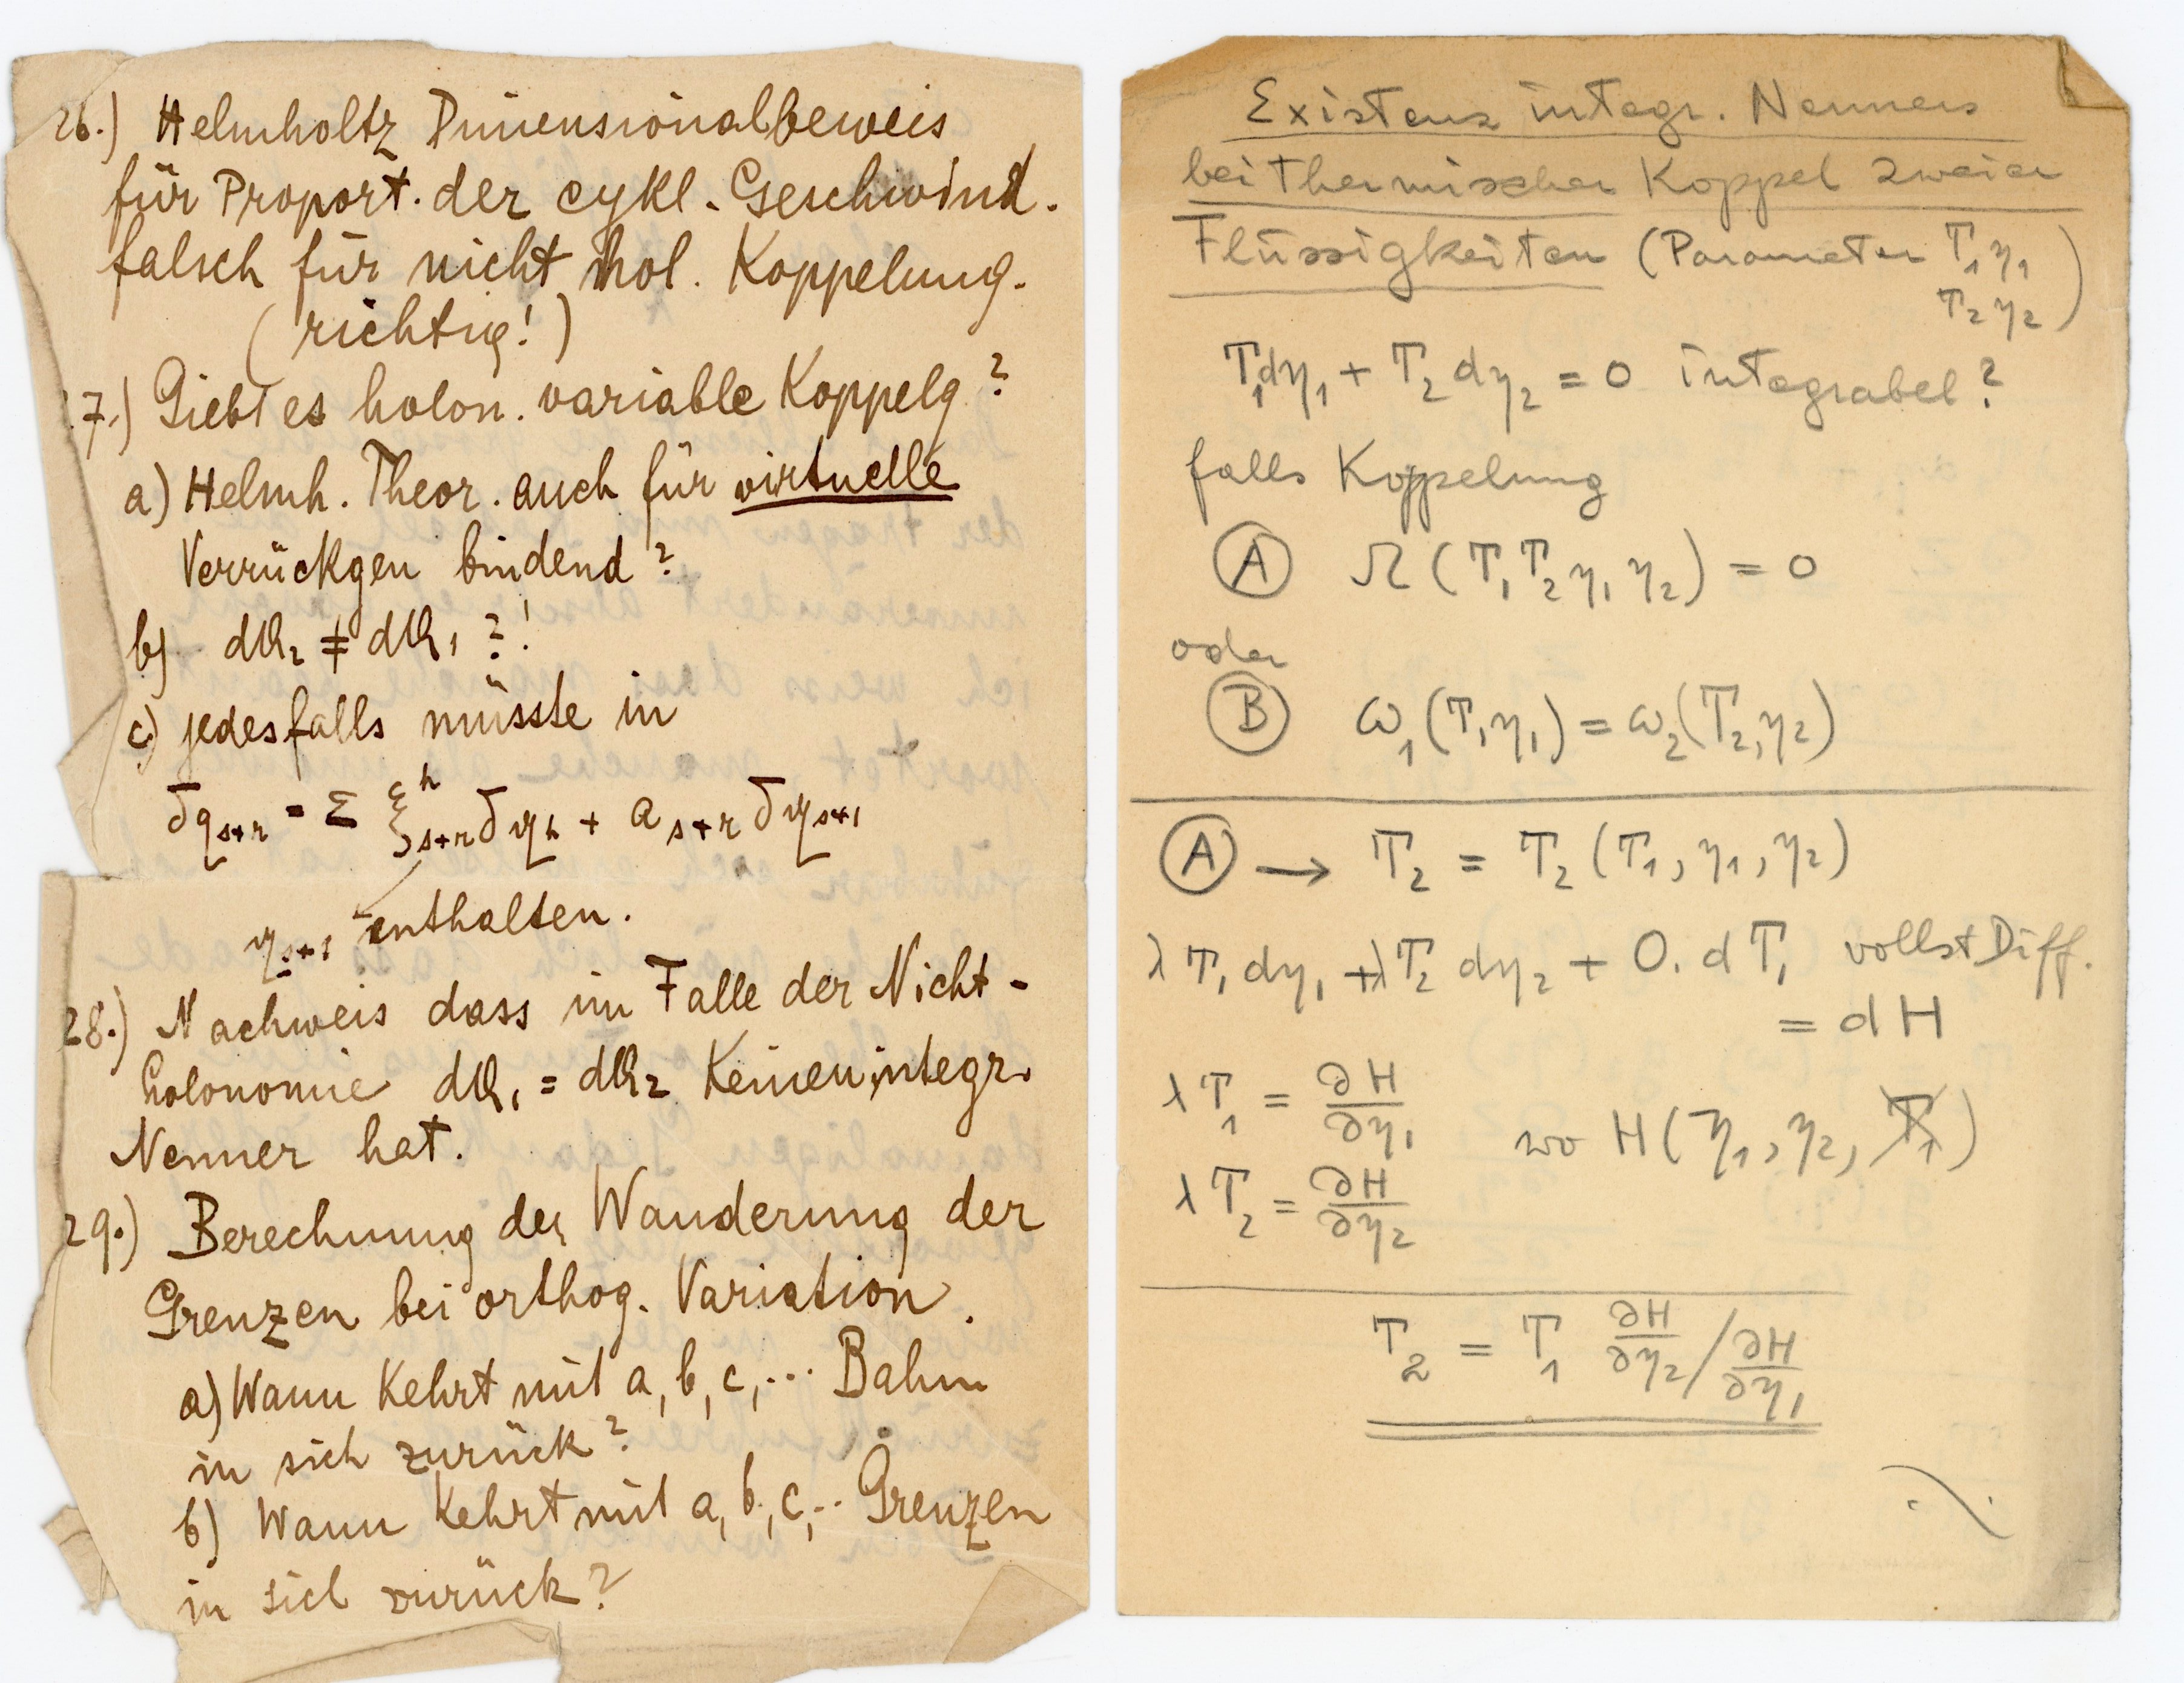 26.) Helmholtz Dimensionalbeweis
für Proport. der cykl. Geschwind.
falsch für nicht hol. Koppelung.
(richtig!)
7.) Giebt es holon. variable Koppelg?
a) Helmh. Theor. auch für virtuelle
Verrückgen bindend?
b) dQ₂ ≠ dQ₁ ?!
c) jedesfalls müsste in
δq_{s+r} = Σ ξ^h_{s+r} δη_h + a_{s+r} δη_{s+1}
η_{s+1} enthalten.
28.) Nachweis dass im Falle der Nicht-
holonomie dQ₁ = dQ₂ Keinen integr.
Nenner hat.
29.) Berechnung der Wanderung der
Grenzen bei orthog. Variation.
a) Wann Kehrt mit a, b, c, ... Bahn
in sich zurück?
b) Wann Kehrt mit a, b, c, ... Grenzen
in sich zurück?
Existenz integr. Nenners
bei thermischer Koppel zweier
Flüssigkeiten (Parameter T₁ η₁
T₂ η₂)
T₁dη₁ + T₂dη₂ = 0 integrabel?
falls Koppelung
Ⓐ Ω(T₁ T₂ η₁ η₂) = 0
oder
Ⓑ ω₁(T₁η₁) = ω₂(T₂,η₂)
Ⓐ → T₂ = T₂(T₁, η₁, η₂)
λT₁dη₁ + λT₂dη₂ + 0. dT₁ vollst Diff.
= dH
λT₁ = ∂H/∂η₁
wo H(η₁, η₂, T₁)
λT₂ = ∂H/∂η₂
T₂ = T₁ ∂H/∂η₂ / ∂H/∂η₁